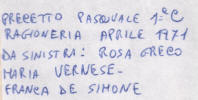 PRECETTO PASQUALE 1ª C
RAGIONERIA APRILE 1971
DA SINISTRA: ROSA GRECO
MARIA VERNESE-
FRANCA DE SIMONE